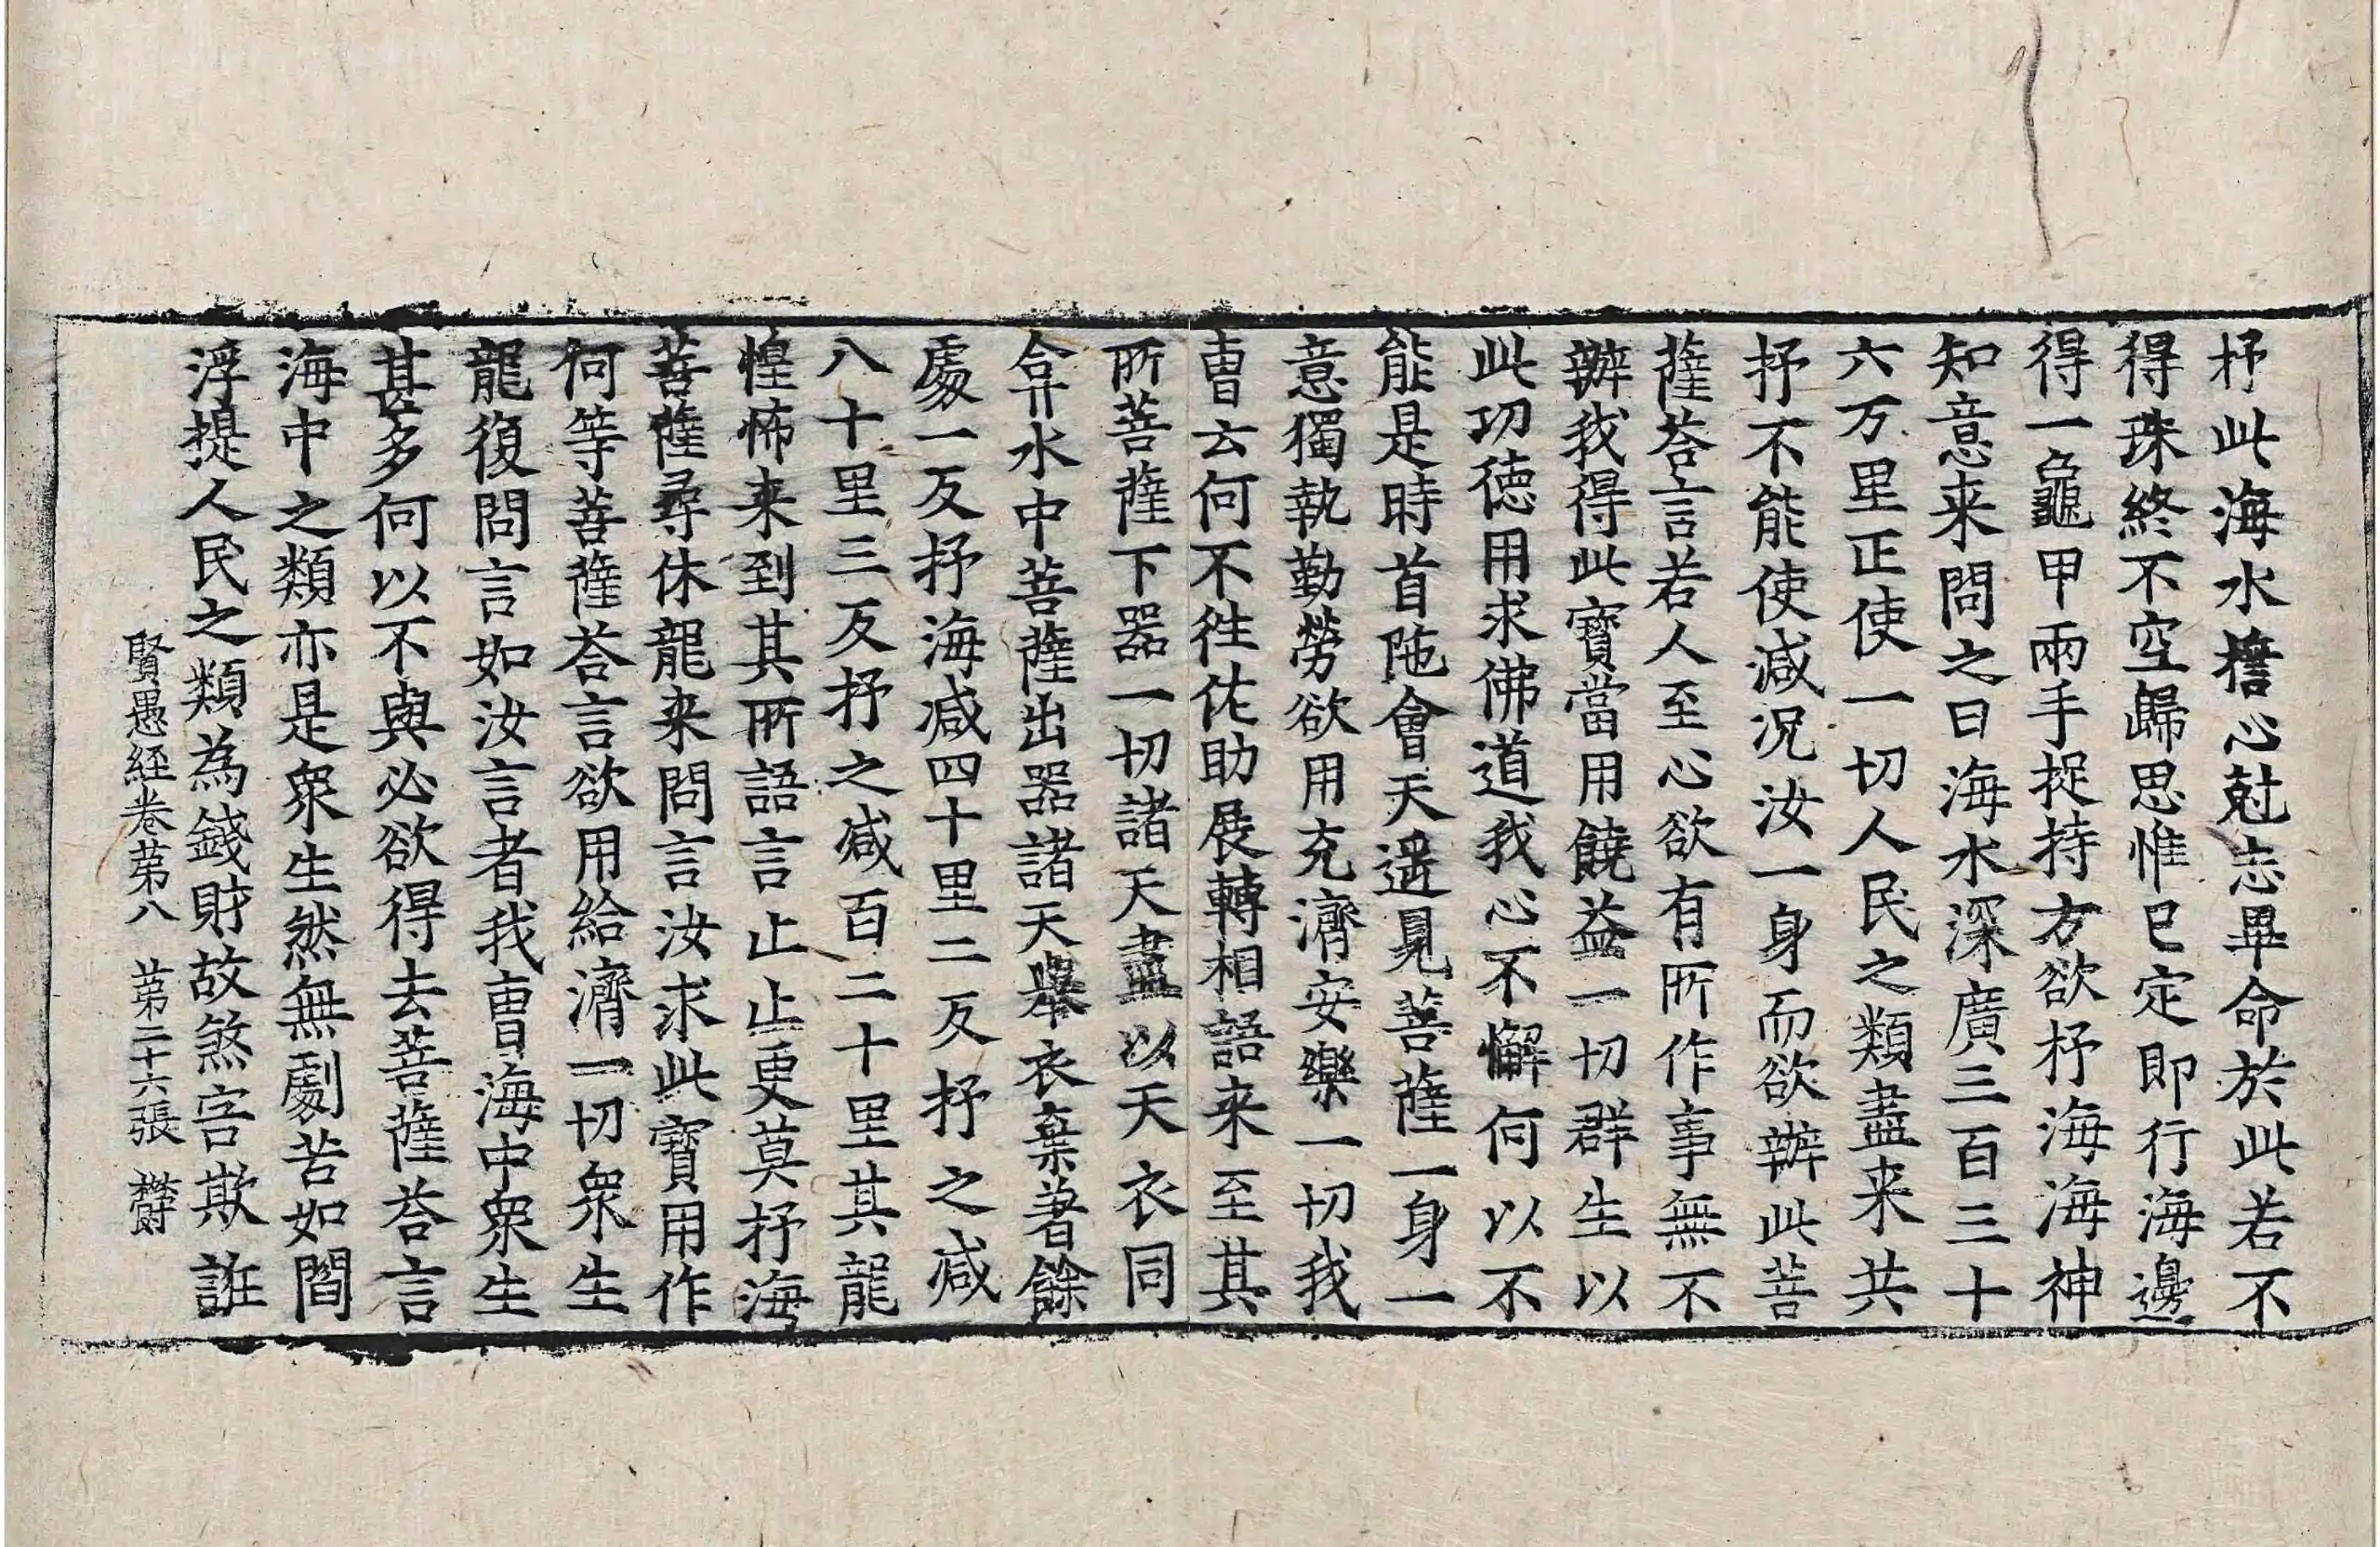 抒此海水擔心尅志畢命於此若不
得珠終不空歸思惟已定即行海邊
得一龜甲兩手捉持方欲抒海海神
知意来問之曰海水深廣三百三十
六万里正使一切人民之類盡来共
抒不能使減况汝一身而欲辦此菩
薩荅言若人至心欲有所作事無不
辦我得此寶當用饒益一切群生以
此功德用求佛道我心不懈何以不
能是時首陁會天遥見菩薩一身一
意獨執勤勞欲用充濟安樂一切我
曺云何不徃佐助展轉相語来至其
所菩薩下器一切諸天盡以天衣同
合弇水中菩薩出器諸天舉衣棄著餘
處一反抒海减四十里二反抒之减
八十里三反抒之减百二十里其龍
惶怖来到其所語言止止更莫抒海
菩薩尋休龍来問言汝求此寶用作
何等菩薩荅言欲用給濟一切衆生
龍復問言如汝言者我曺海中衆生
甚多何以不與必欲得去菩薩荅言
海中之類亦是衆生然無劇苦如閻
浮提人民之類為錢財故煞害欺誑
賢愚経卷苐八 苐二十六張 欝